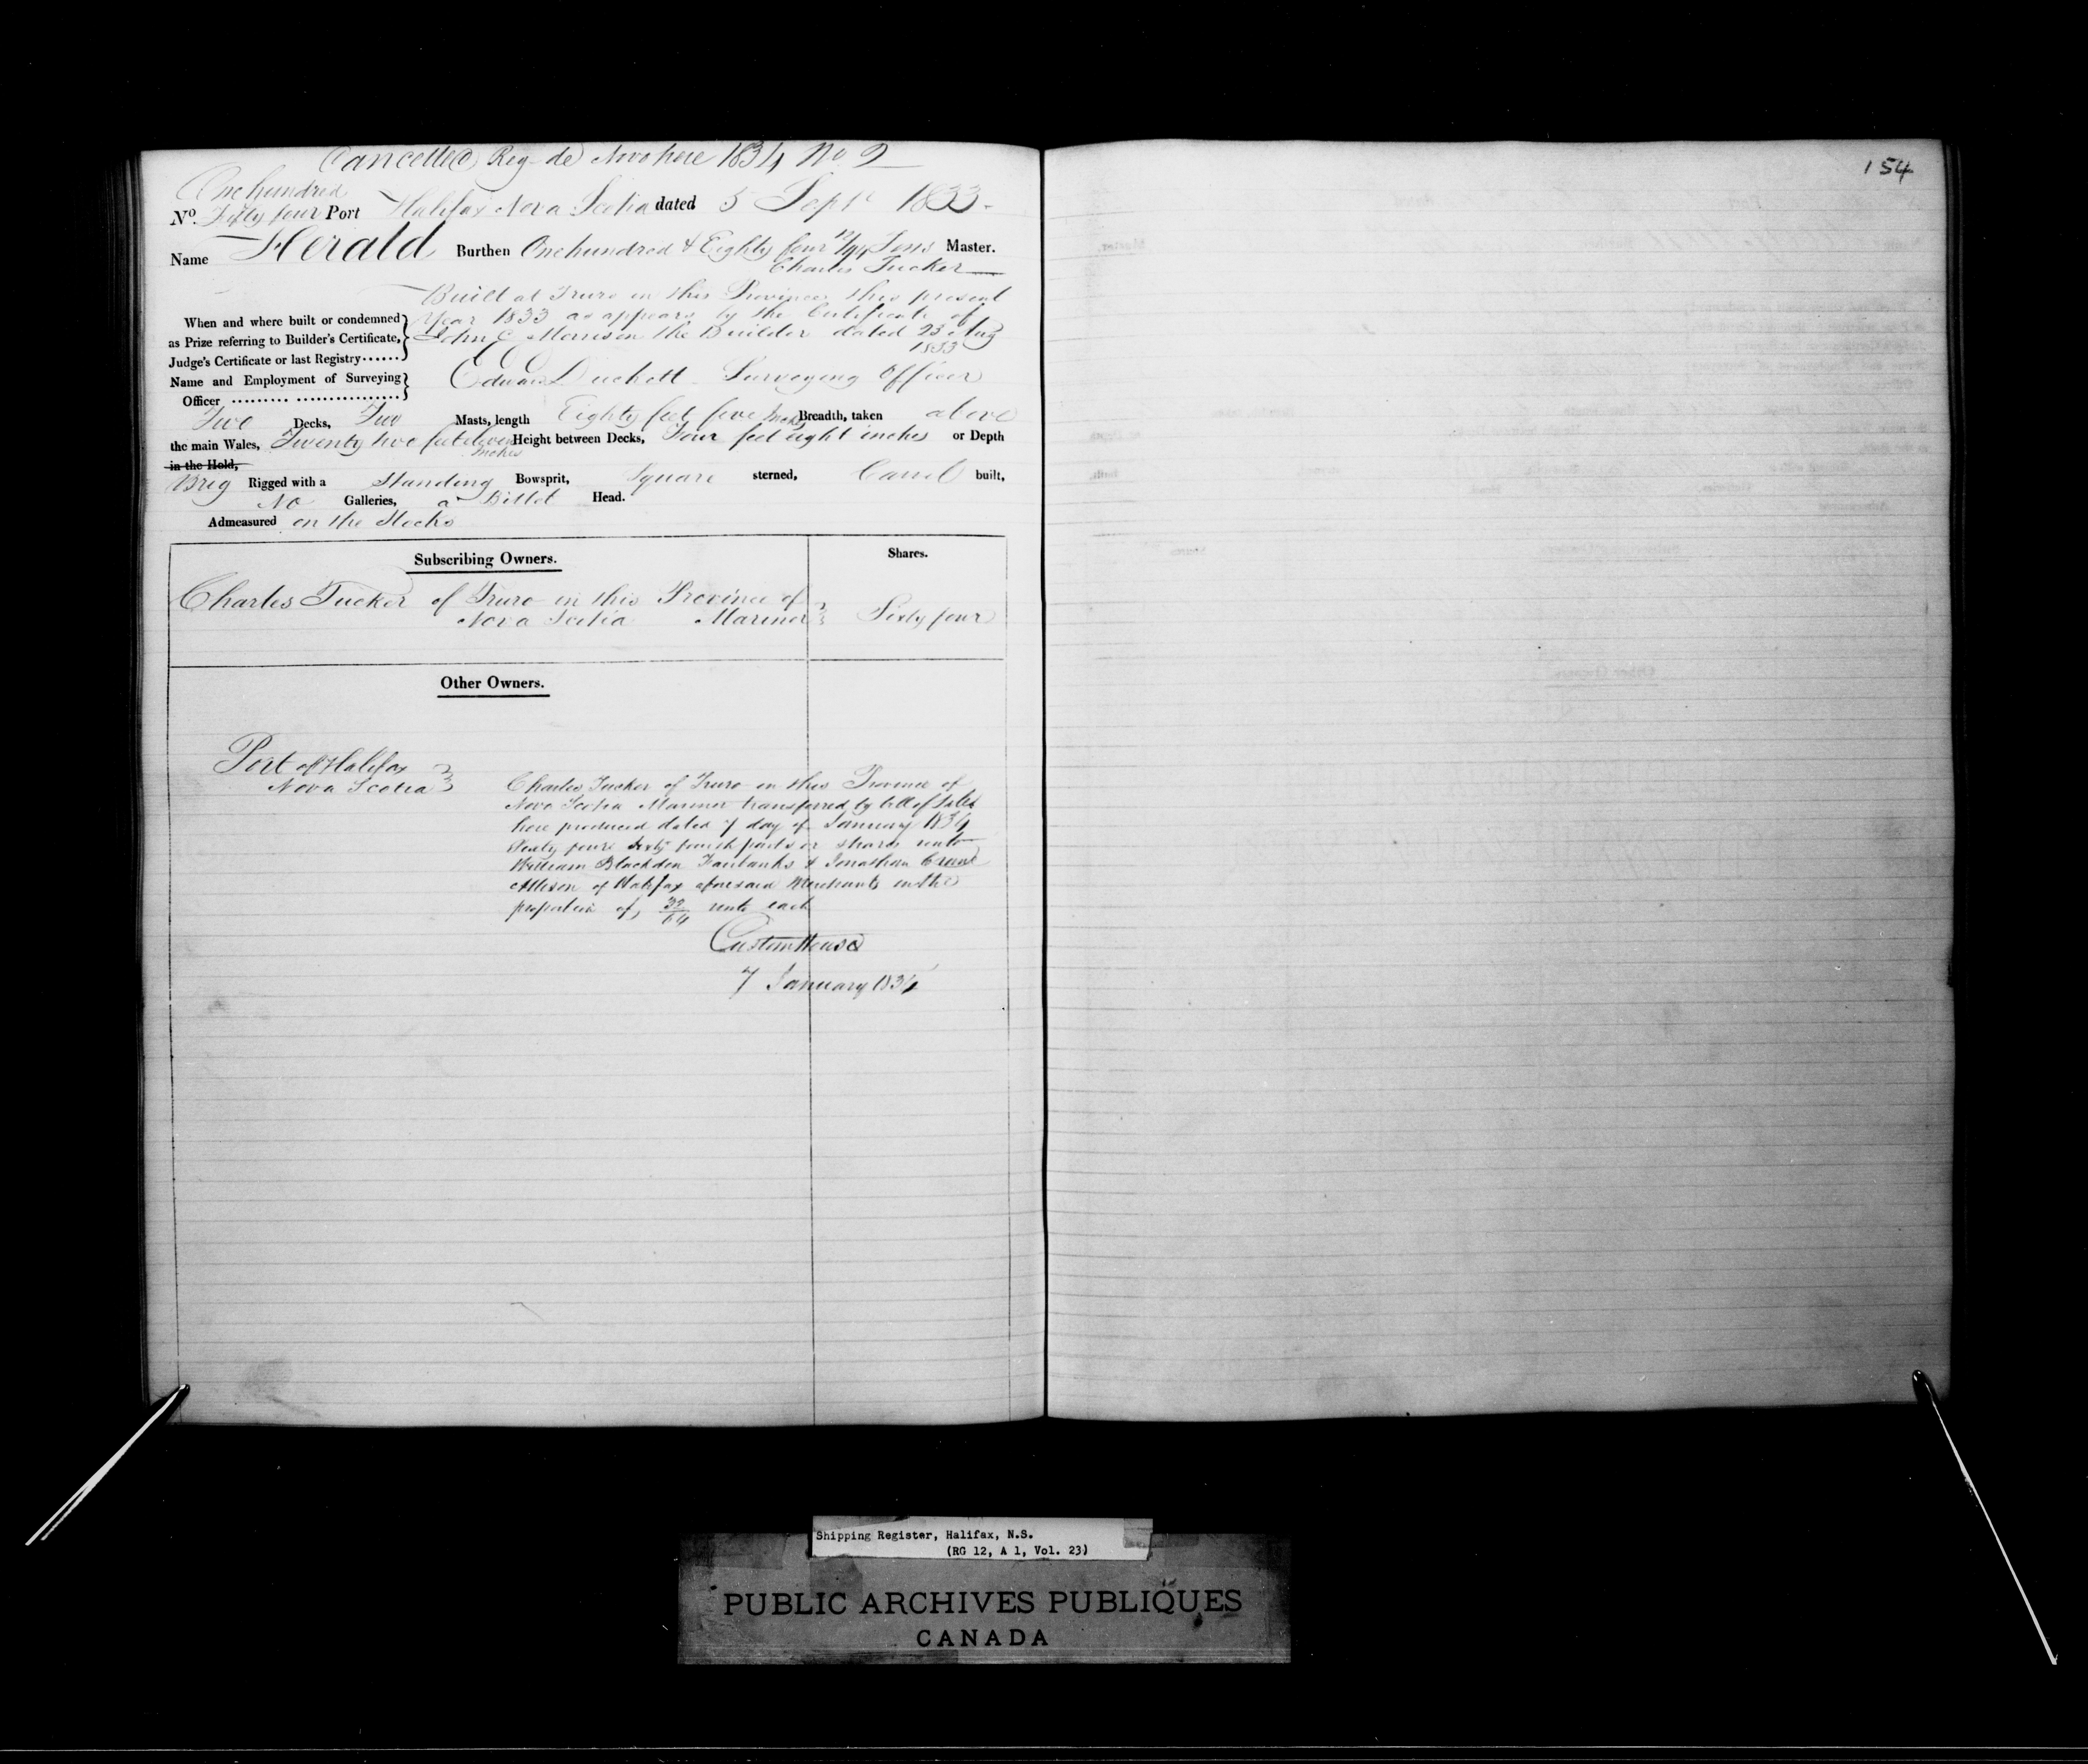 Cancelled Reg de Novo here 1834 No 2
154
One hundred
No. Fifty four Port Halifax Nova Scotia dated 5 Sept 1833.
Name Herald Burthen One hundred & Eighty four 12/94 Tons Master.
Charles Tucker
Built at Truro in this Province this present
When and where built or condemned year 1833 as appears by the Certificate of
as Prize referring to Builder's Certificate, John C Morrison the Builder dated 23 Aug
Judge's Certificate or last Registry...... 1833
Name and Employment of Surveying Edward Duckett Surveying Officer
Officer ......... ..................
Two Decks, Two Masts, length Eighty feet five Inches Breadth, taken above
the main Wales, Twenty two feet eleven Inches Height between Decks, Four feet eight inches or Depth
in the Hold,
Brig Rigged with a Standing Bowsprit, Square sterned, Carvel built,
No Galleries, a Billet Head.
Admeasured on the Stocks
Subscribing Owners. Shares.
Charles Tucker of Truro in this Province of
Nova Scotia Mariner Sixty four
Other Owners.
Port of Halifax
Nova Scotia
Charles Tucker of Truro in this Province of
Nova Scotia Mariner transferred by bill of Sale
here produced dated 7 day of January 1834
Sixty four sixty fourth parts or shares unto
William Blackden Fairbanks & Jonathan Crane
Allison of Halifax aforesaid Merchants in the
proportion of 32/64 unto each
Custom House
7 January 1834
Shipping Register, Halifax, N.S.
(RG 12, A 1, Vol. 23)
PUBLIC ARCHIVES PUBLIQUES
CANADA